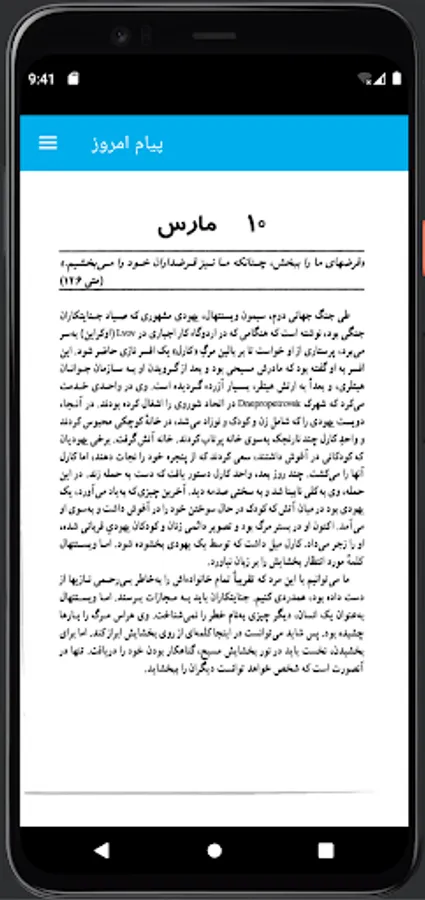 9:41
پیام امروز
۱۰ مارس
«قرضهای ما را ببخش، چنانکه ما نیز قرضداران خود را می‌بخشیم.»
(متی ۱۲:۶)
طی جنگ جهانی دوم، سیمون ویسنتهال، یهودی مشهوری که صیاد جنایتکاران
جنگی بود، نوشته است که هنگامی که در اردوگاه کار اجباری در Lvov (اوکراین) بسر
می‌برد، پرستاری از او خواست تا بر بالین مرگ «کارل» یک افسر نازی حاضر شود. این
افسر به او گفته بود که مادرش مسیحی بود و بعد از گرویدن او به سازمان جوانان
هیتلری، و بعداً به ارتش هیتلر، بسیار آزرده گردیده است. وی در واحدی خدمت
می‌کرد که شهرک Dnepropetrovsk در اتحاد شوروی را اشغال کرده بودند. در آنجا،
دویست یهودی را که شامل زن و کودک و نوزاد می‌شد، در خانهٔ کوچکی محبوس کردند
و واحد کارل چند نارنجک به‌سوی خانه پرتاب کردند. خانه آتش گرفت. برخی یهودیان
که کودکانی در آغوش داشتند، سعی کردند که از پنجره خود را نجات دهند، اما کارل
آنها را می‌کشت. چند روز بعد، واحد کارل دستور یافت که دست به حمله زند. در این
حمله، وی به کلی نابینا شد و به سختی صدمه دید. آخرین چیزی که به یاد می‌آورد، یک
یهودی بود در میان آتش که کودک در حال سوختن خود را در آغوش داشت و به‌سوی او
می‌آمد. اکنون او در بستر مرگ بود و تصویر دائمی زنان و کودکان یهودی قربانی شده،
او را زجر می‌داد. کارل میل داشت که توسط یک یهودی بخشوده شود. اما ویسنتهال
کلمهٔ مورد انتظار بخشایش را بر زبان نیاورد.
ما می‌توانیم با این مرد که تقریباً تمام خانواده‌اش را به‌خاطر بی‌رحمی نازیها از
دست داده بود، همدردی کنیم. جنایتکاران باید به مجازات برسند. اما ویسنتهال
به‌عنوان یک انسان، دیگر چیزی به‌نام خطر را نمی‌شناخت. وی هراس مرگ را بارها
چشیده بود. پس شاید می‌توانست در اینجا کلمه‌ای از روی بخشایش ابراز کند. اما برای
بخشیدن، نخست باید در نور بخشایش مسیح، گناهکار بودن خود را دریافت. تنها در
آنصورت است که شخص خواهد توانست دیگران را ببخشاید.